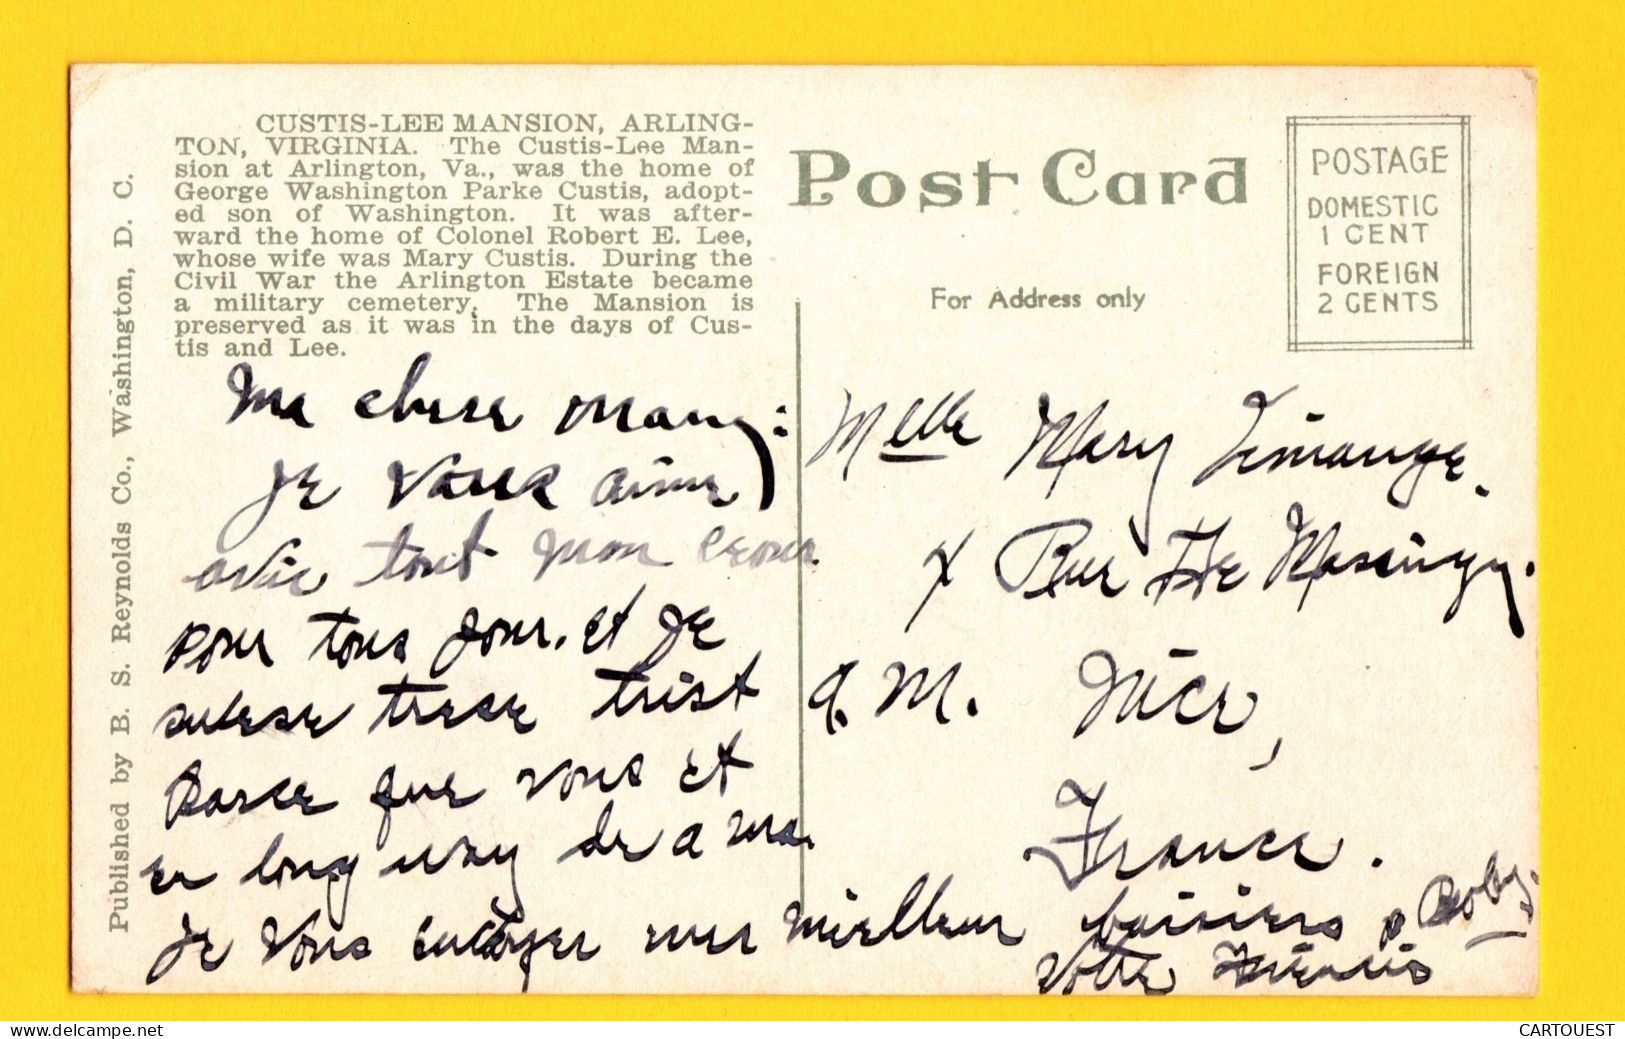 CUSTIS-LEE MANSION, ARLING-
TON, VIRGINIA. The Custis-Lee Man-
sion at Arlington, Va., was the home of
George Washington Parke Custis, adopt-
ed son of Washington. It was after-
ward the home of Colonel Robert E. Lee,
whose wife was Mary Custis. During the
Civil War the Arlington Estate became
a military cemetery. The Mansion is
preserved as it was in the days of Cus-
tis and Lee.
Published by B. S. Reynolds Co., Washington, D. C.
Post Card
For Address only
POSTAGE
DOMESTIC
1 CENT
FOREIGN
2 CENTS
Ma chere Mary:
Je vous aime
avic tout mon
pour tous jour. et je
trese trist
parce que vous et
long way de a
Je vous envoyer mes mielleur baisiers
Votre
Boby.
Melle Mary
Rue De Massingy.
A. M. Nice,
France.
CARTOUEST